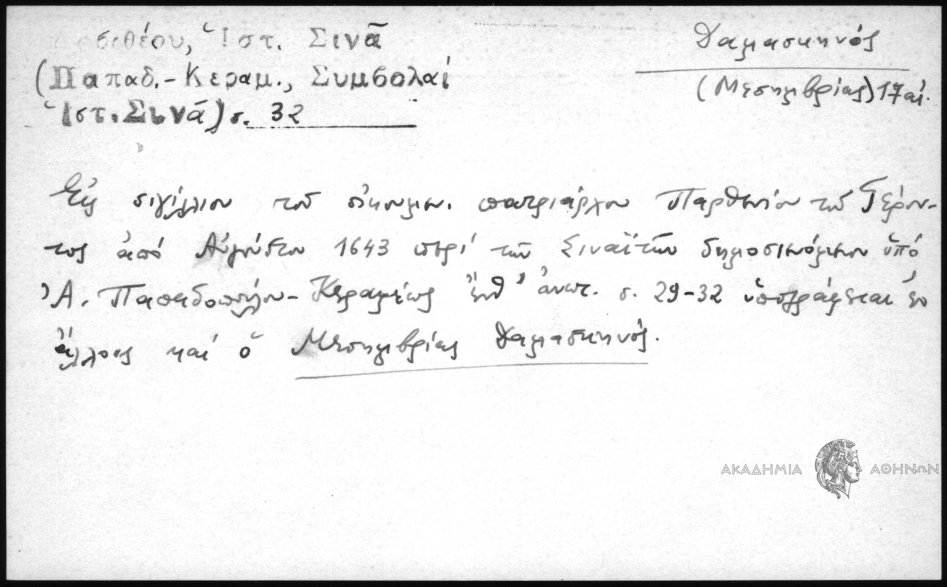 Δοσιθέου, Ἱστ. Σινᾶ
(Παπαδ.-Κεραμ., Συμβολαί
Ἱστ. Σινᾶ) σ. 32
Δαμασκηνός
(Μεσημβρίας) 17 αἰ.
Εἰς σιγίλλιον τοῦ οἰκουμεν. πατριάρχου Παρθενίου τοῦ Γέρον-
τος ἀπό Αὐγούστου 1643 περί τῶν Σιναϊτῶν δημοσιευόμενον ὑπό
Ἀ. Παπαδοπούλου-Κεραμέως ἔνθ' ἀνωτ. σ. 29-32 ὑπογράφεται ἐν
ἄλλοις καί ὁ Μεσημβρίας Δαμασκηνός.
ΑΚΑΔΗΜΙΑ ΑΘΗΝΩΝ